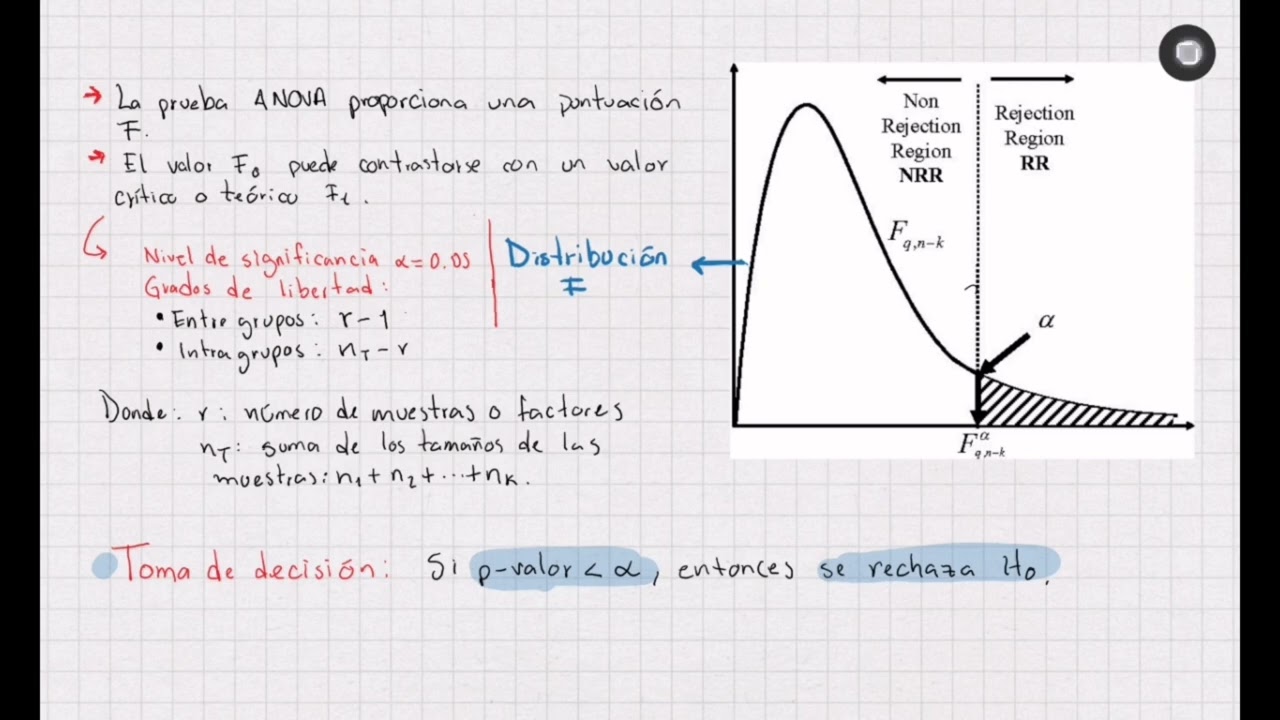 → La prueba ANOVA proporciona una puntuación
F.
→ El valor F₀ puede contrastarse con un valor
crítico o teórico Fₜ.
Nivel de significancia α=0.05
Grados de libertad:
• Entre grupos: r-1
• Intra grupos: n_T-r
Distribución
F
Donde: r: número de muestras o factores
n_T: suma de los tamaños de las
muestras: n₁+n₂+...+nₖ.
Non
Rejection
Region
NRR
Rejection
Region
RR
F_{q,n-k}
α
F^α_{q,n-k}
Toma de decisión: Si p-valor < α, entonces se rechaza H₀.